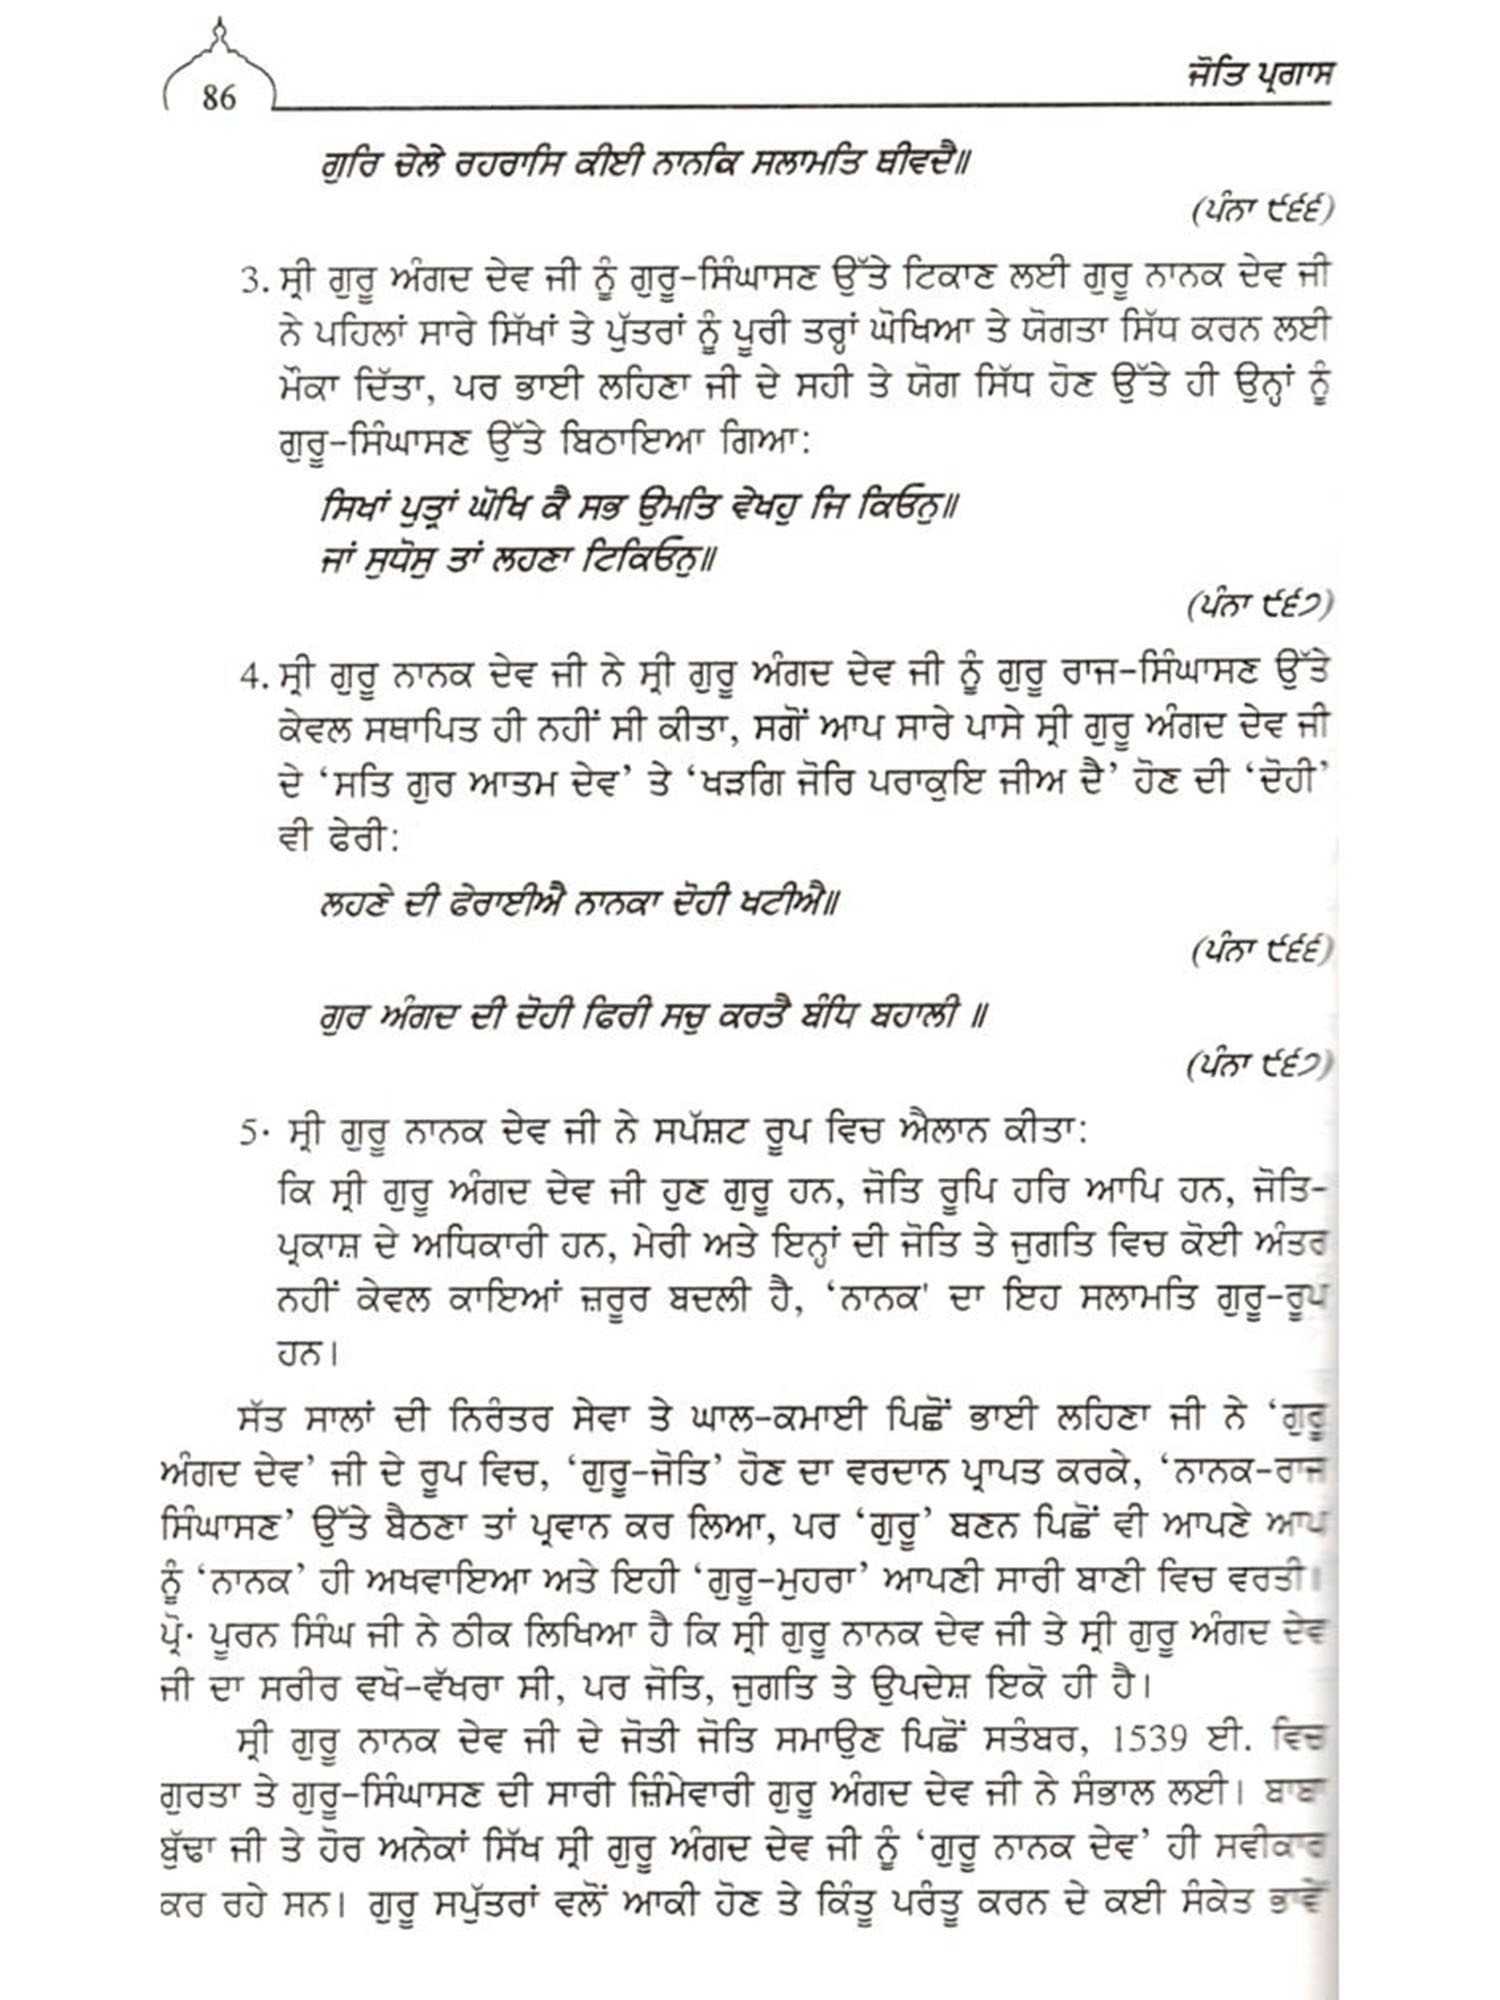 86
ਜੋਤਿ ਪ੍ਰਗਾਸ
ਗੁਰਿ ਚੇਲੇ ਰਹਰਾਸਿ ਕੀਈ ਨਾਨਕਿ ਸਲਾਮਤਿ ਥੀਵਦੈ॥
(ਪੰਨਾ ੯੬੬)
3. ਸ੍ਰੀ ਗੁਰੂ ਅੰਗਦ ਦੇਵ ਜੀ ਨੂੰ ਗੁਰੂ-ਸਿੰਘਾਸਣ ਉੱਤੇ ਟਿਕਾਣ ਲਈ ਗੁਰੂ ਨਾਨਕ ਦੇਵ ਜੀ
ਨੇ ਪਹਿਲਾਂ ਸਾਰੇ ਸਿੱਖਾਂ ਤੇ ਪੁੱਤਰਾਂ ਨੂੰ ਪੂਰੀ ਤਰ੍ਹਾਂ ਘੋਖਿਆ ਤੇ ਯੋਗਤਾ ਸਿੱਧ ਕਰਨ ਲਈ
ਮੌਕਾ ਦਿੱਤਾ, ਪਰ ਭਾਈ ਲਹਿਣਾ ਜੀ ਦੇ ਸਹੀ ਤੇ ਯੋਗ ਸਿੱਧ ਹੋਣ ਉੱਤੇ ਹੀ ਉਨ੍ਹਾਂ ਨੂੰ
ਗੁਰੂ-ਸਿੰਘਾਸਣ ਉੱਤੇ ਬਿਠਾਇਆ ਗਿਆ:
ਸਿਖਾਂ ਪੁਤ੍ਰਾਂ ਘੋਖਿ ਕੈ ਸਭ ਉਮਤਿ ਵੇਖਹੁ ਜਿ ਕਿਓਨੁ॥
ਜਾਂ ਸੁਧੋਸੁ ਤਾਂ ਲਹਣਾ ਟਿਕਿਓਨੁ॥
(ਪੰਨਾ ੯੬੭)
4. ਸ੍ਰੀ ਗੁਰੂ ਨਾਨਕ ਦੇਵ ਜੀ ਨੇ ਸ੍ਰੀ ਗੁਰੂ ਅੰਗਦ ਦੇਵ ਜੀ ਨੂੰ ਗੁਰੂ ਰਾਜ-ਸਿੰਘਾਸਣ ਉੱਤੇ
ਕੇਵਲ ਸਥਾਪਿਤ ਹੀ ਨਹੀਂ ਸੀ ਕੀਤਾ, ਸਗੋਂ ਆਪ ਸਾਰੇ ਪਾਸੇ ਸ੍ਰੀ ਗੁਰੂ ਅੰਗਦ ਦੇਵ ਜੀ
ਦੇ ‘ਸਤਿ ਗੁਰ ਆਤਮ ਦੇਵ’ ਤੇ ‘ਖੜਗਿ ਜੋਰਿ ਪਰਾਕੁਇ ਜੀਅ ਦੈ’ ਹੋਣ ਦੀ ‘ਦੋਹੀ’
ਵੀ ਫੇਰੀ:
ਲਹਣੇ ਦੀ ਫੇਰਾਈਐ ਨਾਨਕਾ ਦੋਹੀ ਖਟੀਐ॥
(ਪੰਨਾ ੯੬੬)
ਗੁਰ ਅੰਗਦ ਦੀ ਦੋਹੀ ਫਿਰੀ ਸਚੁ ਕਰਤੈ ਬੰਧਿ ਬਹਾਲੀ ॥
(ਪੰਨਾ ੯੬੭)
5· ਸ੍ਰੀ ਗੁਰੂ ਨਾਨਕ ਦੇਵ ਜੀ ਨੇ ਸਪੱਸ਼ਟ ਰੂਪ ਵਿਚ ਐਲਾਨ ਕੀਤਾ:
ਕਿ ਸ੍ਰੀ ਗੁਰੂ ਅੰਗਦ ਦੇਵ ਜੀ ਹੁਣ ਗੁਰੂ ਹਨ, ਜੋਤਿ ਰੂਪਿ ਹਰਿ ਆਪਿ ਹਨ, ਜੋਤਿ-
ਪ੍ਰਕਾਸ਼ ਦੇ ਅਧਿਕਾਰੀ ਹਨ, ਮੇਰੀ ਅਤੇ ਇਨ੍ਹਾਂ ਦੀ ਜੋਤਿ ਤੇ ਜੁਗਤਿ ਵਿਚ ਕੋਈ ਅੰਤਰ
ਨਹੀਂ ਕੇਵਲ ਕਾਇਆਂ ਜ਼ਰੂਰ ਬਦਲੀ ਹੈ, ‘ਨਾਨਕ' ਦਾ ਇਹ ਸਲਾਮਤਿ ਗੁਰੂ-ਰੂਪ
ਹਨ।
ਸੱਤ ਸਾਲਾਂ ਦੀ ਨਿਰੰਤਰ ਸੇਵਾ ਤੇ ਘਾਲ-ਕਮਾਈ ਪਿਛੋਂ ਭਾਈ ਲਹਿਣਾ ਜੀ ਨੇ ‘ਗੁਰੂ
ਅੰਗਦ ਦੇਵ’ ਜੀ ਦੇ ਰੂਪ ਵਿਚ, ‘ਗੁਰੂ-ਜੋਤਿ’ ਹੋਣ ਦਾ ਵਰਦਾਨ ਪ੍ਰਾਪਤ ਕਰਕੇ, ‘ਨਾਨਕ-ਰਾਜ
ਸਿੰਘਾਸਣ’ ਉੱਤੇ ਬੈਠਣਾ ਤਾਂ ਪ੍ਰਵਾਨ ਕਰ ਲਿਆ, ਪਰ ‘ਗੁਰੂ’ ਬਣਨ ਪਿਛੋਂ ਵੀ ਆਪਣੇ ਆਪ
ਨੂੰ ‘ਨਾਨਕ’ ਹੀ ਅਖਵਾਇਆ ਅਤੇ ਇਹੀ ‘ਗੁਰੂ-ਮੁਹਰਾ’ ਆਪਣੀ ਸਾਰੀ ਬਾਣੀ ਵਿਚ ਵਰਤੀ।
ਪ੍ਰੋ· ਪੂਰਨ ਸਿੰਘ ਜੀ ਨੇ ਠੀਕ ਲਿਖਿਆ ਹੈ ਕਿ ਸ੍ਰੀ ਗੁਰੂ ਨਾਨਕ ਦੇਵ ਜੀ ਤੇ ਸ੍ਰੀ ਗੁਰੂ ਅੰਗਦ ਦੇਵ
ਜੀ ਦਾ ਸਰੀਰ ਵਖੋ-ਵੱਖਰਾ ਸੀ, ਪਰ ਜੋਤਿ, ਜੁਗਤਿ ਤੇ ਉਪਦੇਸ਼ ਇਕੋ ਹੀ ਹੈ।
ਸ੍ਰੀ ਗੁਰੂ ਨਾਨਕ ਦੇਵ ਜੀ ਦੇ ਜੋਤੀ ਜੋਤਿ ਸਮਾਉਣ ਪਿਛੋਂ ਸਤੰਬਰ, 1539 ਈ. ਵਿਚ
ਗੁਰਤਾ ਤੇ ਗੁਰੂ-ਸਿੰਘਾਸਣ ਦੀ ਸਾਰੀ ਜ਼ਿੰਮੇਵਾਰੀ ਗੁਰੂ ਅੰਗਦ ਦੇਵ ਜੀ ਨੇ ਸੰਭਾਲ ਲਈ। ਬਾਬਾ
ਬੁੱਢਾ ਜੀ ਤੇ ਹੋਰ ਅਨੇਕਾਂ ਸਿੱਖ ਸ੍ਰੀ ਗੁਰੂ ਅੰਗਦ ਦੇਵ ਜੀ ਨੂੰ ‘ਗੁਰੂ ਨਾਨਕ ਦੇਵ’ ਹੀ ਸਵੀਕਾਰ
ਕਰ ਰਹੇ ਸਨ। ਗੁਰੂ ਸਪੁੱਤਰਾਂ ਵਲੋਂ ਆਕੀ ਹੋਣ ਤੇ ਕਿੰਤੂ ਪਰੰਤੂ ਕਰਨ ਦੇ ਕਈ ਸੰਕੇਤ ਭਾਵੇਂ